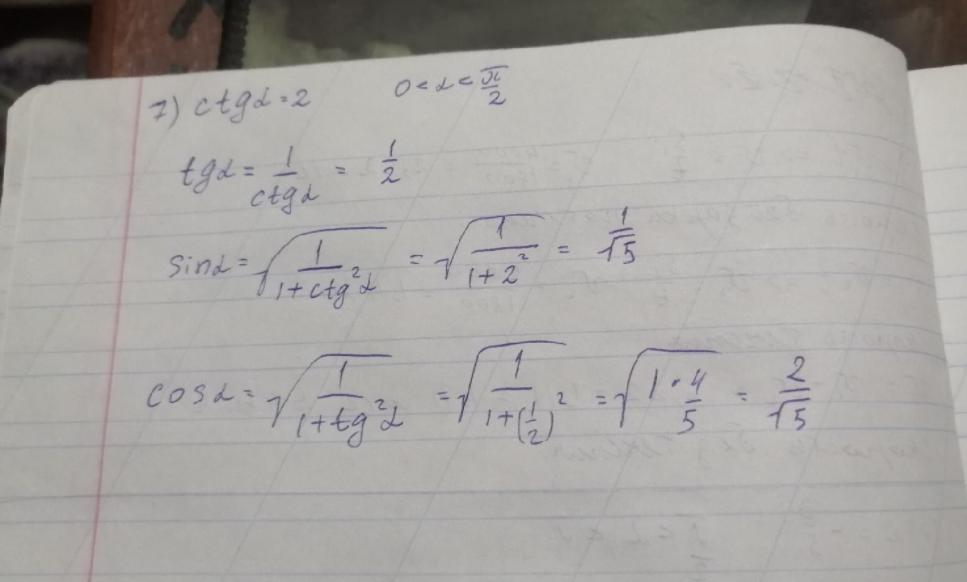 7) ctgα = 2 0 < α < π/2
tgα = 1/ctgα = 1/2
sinα = √(1/(1+ctg²α)) = √(1/(1+2²)) = 1/√5
cosα = √(1/(1+tg²α)) = √(1/(1+(1/2)²)) = √(1·4/5) = 2/√5